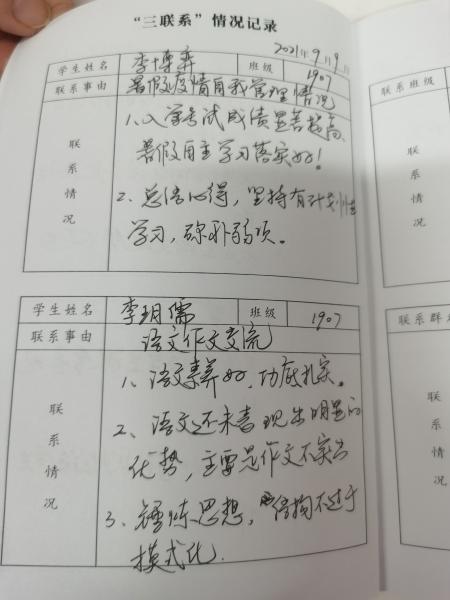 “三联系”情况记录
2021年9月9日
学生姓名 李博弈 班级 1907
联系事由 暑假疫情自我管理情况
联系情况
1、入学考试成绩显著提高、
暑假自主学习落实好！
2、总结心得，坚持有计划性
学习，弥补弱项。
学生姓名 李玥儒 班级 1907
联系事由 语文作文交流
联系情况
1、语文素养好，功底扎实。
2、语文还未表现出明显的
优势，主要是作文不突出
3、锤炼思想，结构不过于
模式化.
联系班级
联系情况
联系群
联系情况